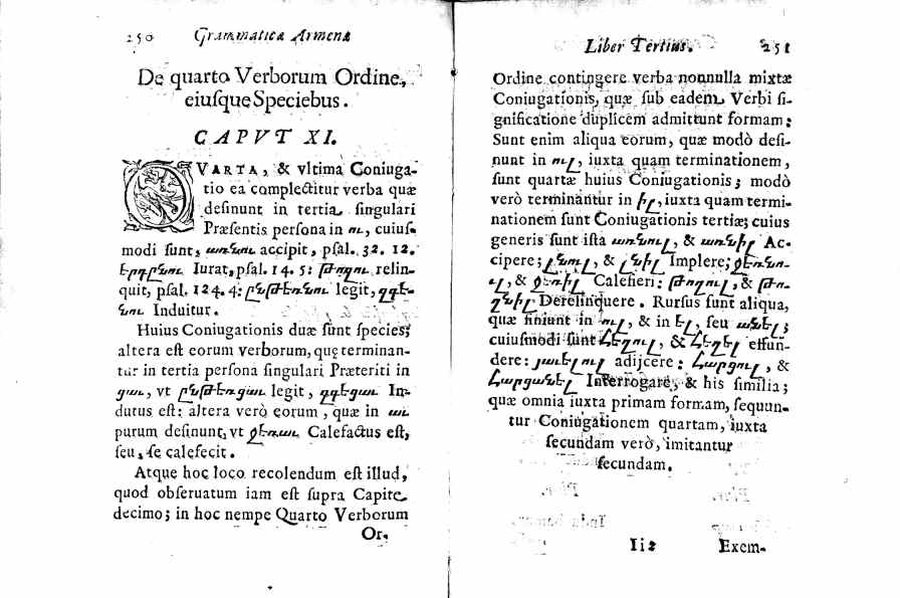 250 Grammaticæ Armenæ
De quarto Verborum Ordine,
eiusque Speciebus.
CAPVT XI.
QVARTA, & vltima Coniuga-
tio ea complectitur verba quæ
desinunt in tertia singulari
Præsentis persona in ու, cuius-
modi sunt, առնու accipit, psal. 32. 12.
երդընու Iurat, psal. 14. 5: թողու relin-
quit, psal. 124. 4: ընթեռնու legit, զգե-
նու Induitur.
Huius Coniugationis duæ sunt species;
altera est eorum verborum, quę terminan-
tur in tertia persona singulari Præteriti in
ցաւ, vt ընթերցաւ legit, զգեցաւ In-
dutus est: altera verò eorum, quæ in աւ
purum desinunt, vt ջեռաւ Calefactus est,
seu, se calefecit.
Atque hoc loco recolendum est illud,
quod obseruatum iam est supra Capite
decimo; in hoc nempe Quarto Verborum
Or-
Liber Tertius. 251
Ordine contingere verba nonnulla mixtæ
Coniugationis, quæ sub eadem Verbi si-
gnificatione duplicem admittunt formam:
Sunt enim aliqua eorum, quæ modò desi-
nunt in ուլ, iuxta quam terminationem,
sunt quartæ huius Coniugationis; modò
verò terminantur in իլ, iuxta quam termi-
nationem sunt Coniugationis tertiæ; cuius
generis sunt ista առնուլ, & առնիլ Ac-
cipere; լնուլ, & լնիլ Implere; ջեռնո-
ւլ, & ջեռիլ Calefieri: թողուլ, & թո-
ղնիլ Derelinquere. Rursus sunt aliqua,
quæ finiunt in ուլ, & in ել, seu անել;
cuiusmodi sunt Հեղուլ, & Հեղել effun-
dere: յաւելուլ adijcere: Հարցուլ, &
Հարցանել Interrogare, & his similia;
quæ omnia iuxta primam formam, sequun-
tur Coniugationem quartam, iuxta
secundam verò, imitantur
secundam.
Iii2 Exem-